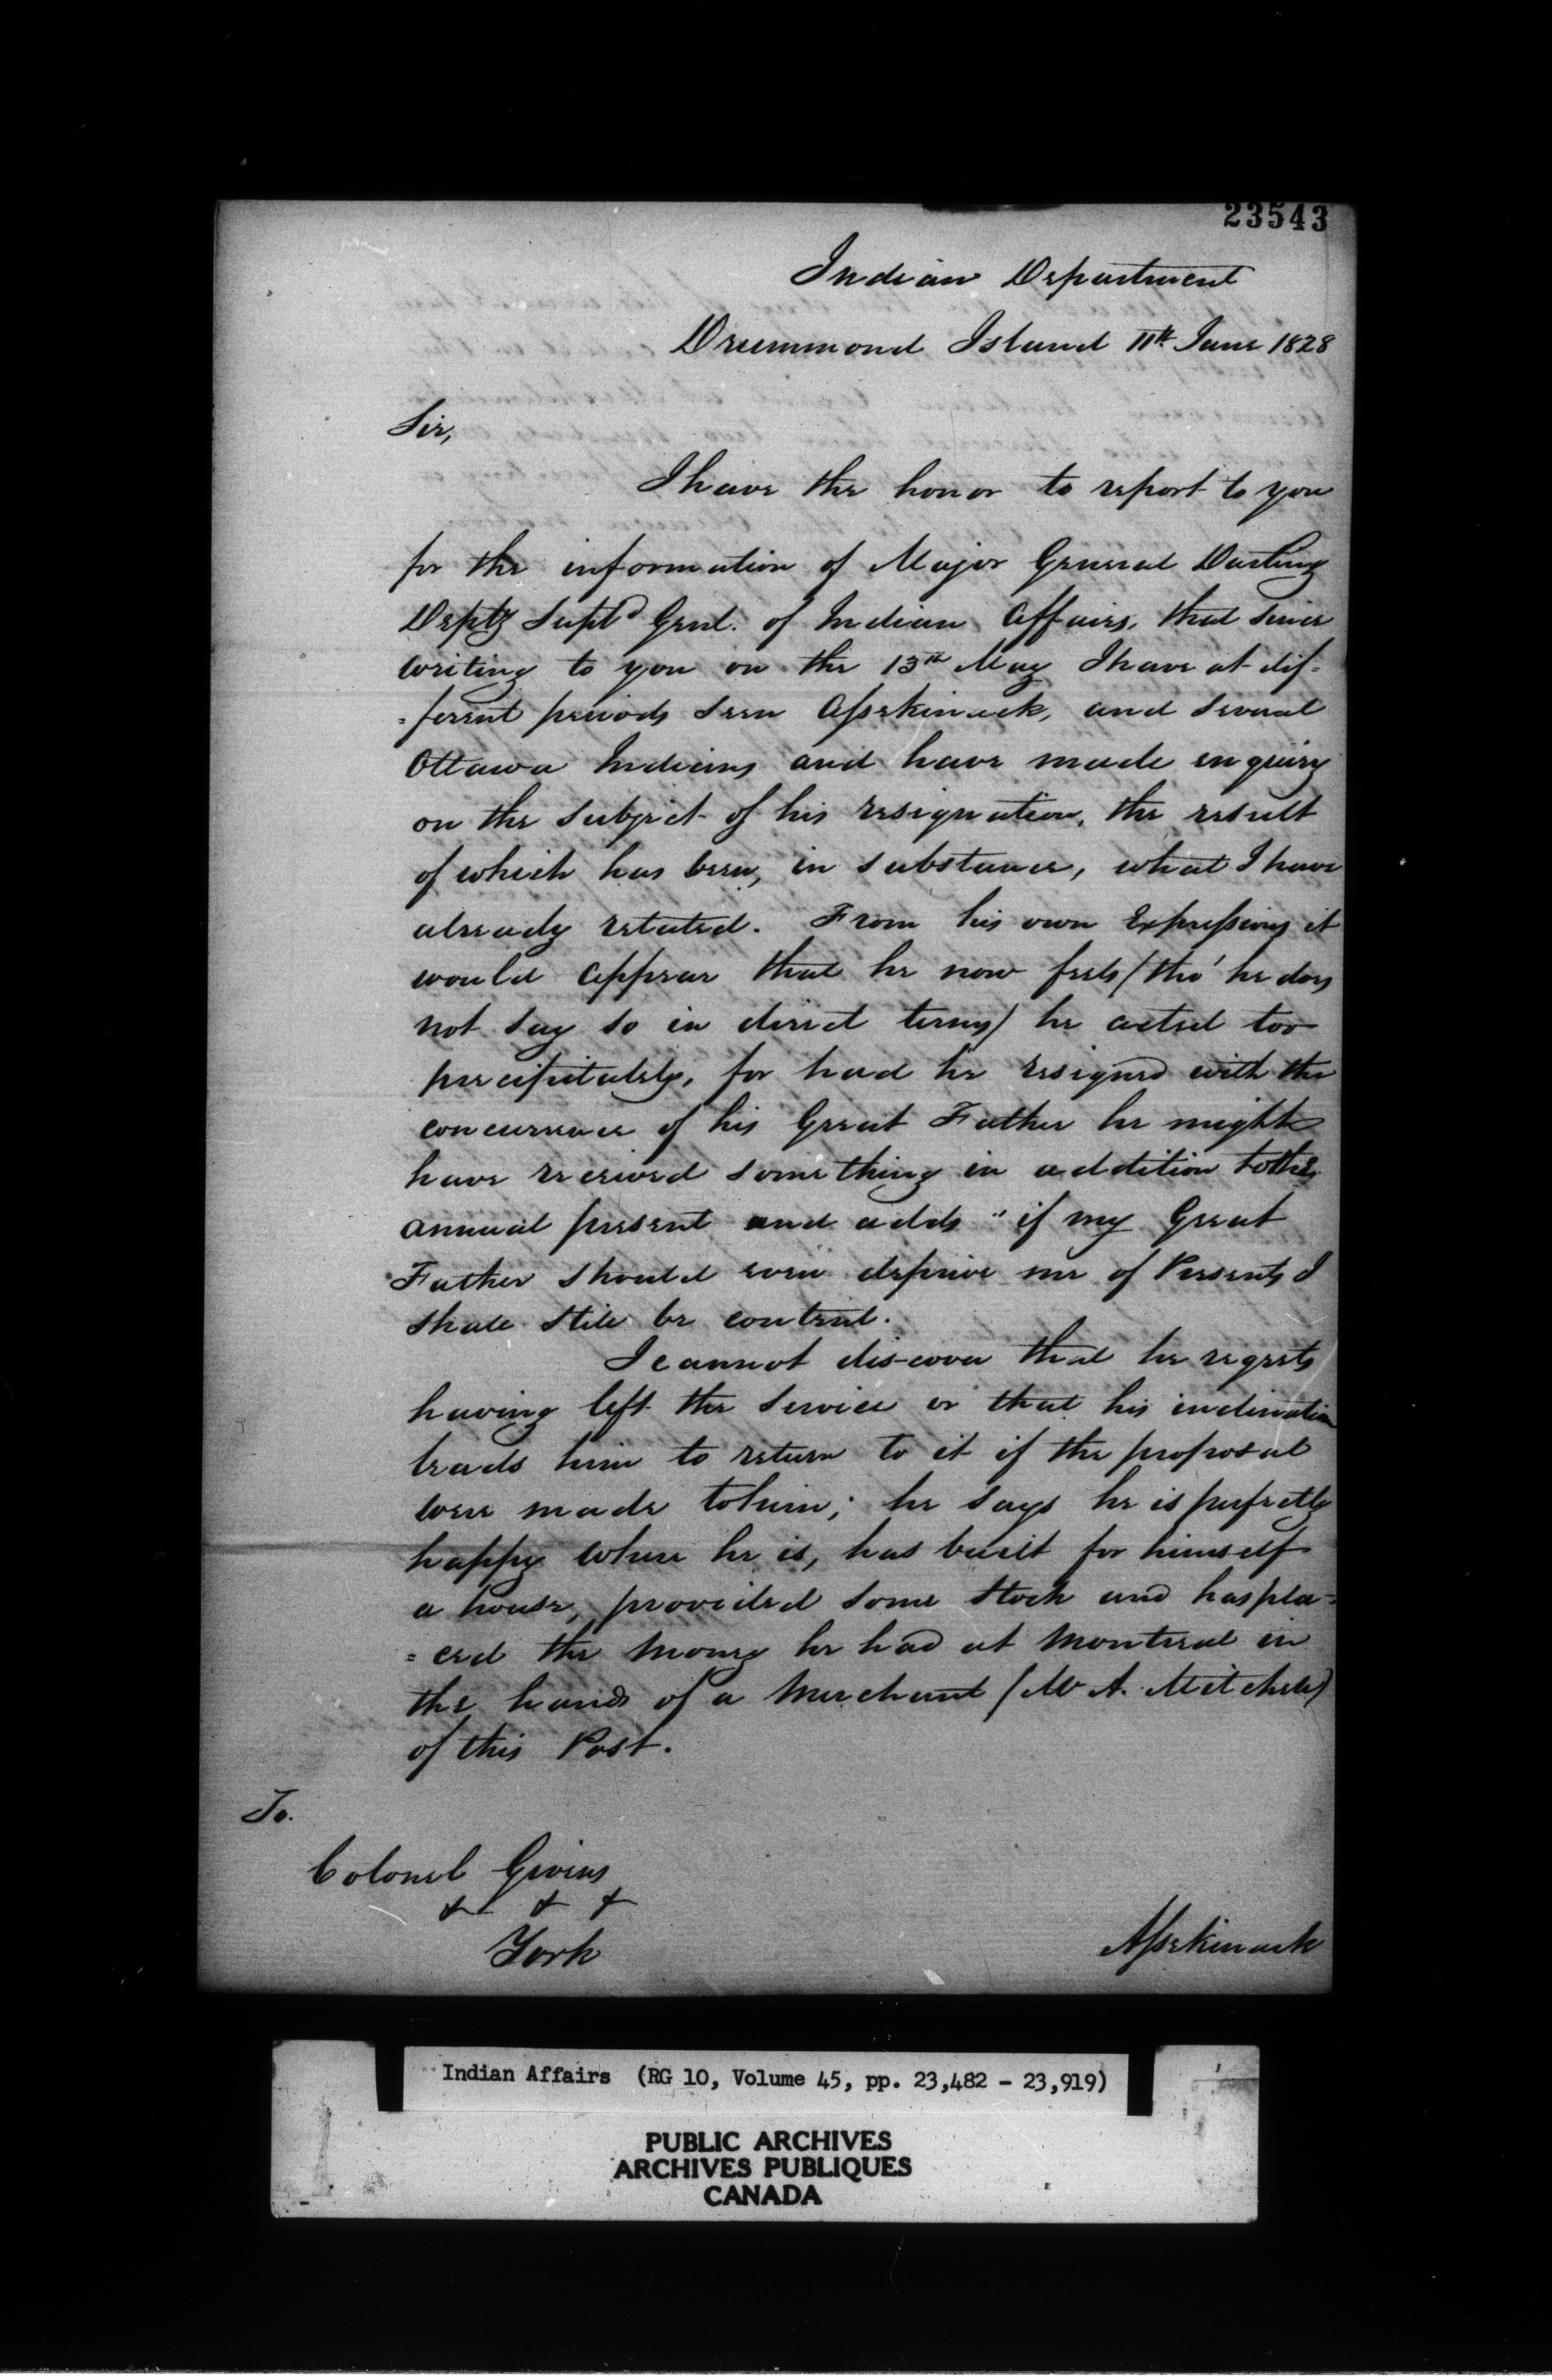 23543
Indian Department
Drummond Island 11th June 1828
Sir,
I have the honor to report to you
for the information of Major General Darling
Depty Supt Genl. of Indian Affairs, that since
writing to you on the 13th May I have at dif=
=ferent periods seen Assekinack, and several
Ottawa Indians and have made enquiry
on the subject of his resignation, the result
of which has been, in substance, what I have
already stated. From his own Expressions it
would appear that he now feels (tho' he does
not say so in direct terms) he acted too
precipitately, for had he resigned with the
concurrence of his Great Father he might
have received something in addition to the
annual present and adds "if my Great
Father should even deprive me of Presents I
shall still be content.
I cannot discover that he regrets
having left the service or that his inclination
leads him to return to it if the proposal
were made to him; he says he is perfectly
happy where he is, has built for himself
a house, provided some stock and has pla=
=ced the money he had at Montreal in
the hands of a Merchant (Mr A. Mitchell)
of this Post.
To.
Colonel Givins
& & &
York
Assekinack
Indian Affairs (RG 10, Volume 45, pp. 23,482 - 23,919)
PUBLIC ARCHIVES
ARCHIVES PUBLIQUES
CANADA